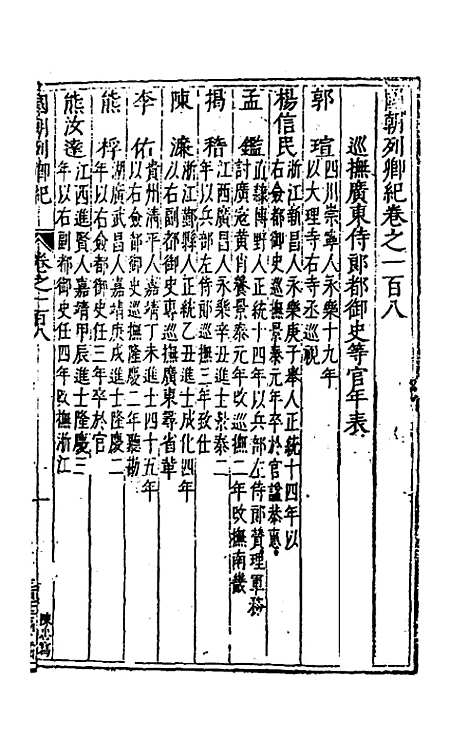 國朝列卿紀卷之一百八
巡撫廣東侍郎都御史等官年表
郭瑄 四川崇寧人永樂十九年
以大理寺右寺丞巡視
楊信民 浙江新昌人永樂庚子舉人正統十四年以
右僉都御史巡撫景泰元年卒於官謚恭惠
孟鑑 直隸博野人正統十四年以兵部左侍郎贊理軍務
討廣寇黃肖養景泰元年改巡撫二年改撫南畿
揭稽 江西人永樂辛丑進士景泰二
年以兵部左侍郎巡撫三年致仕
陳濂 浙江鄞縣人正統乙丑進士成化四年
以右副都御史專巡撫廣東尋省革
李佑 貴州清平人嘉靖丁未進士四十五年
以右僉都御史巡撫隆慶二年聽勘
熊桴 湖廣武昌人嘉靖庚戌進士隆慶二
年以右僉都御史任三年卒於官
熊汝達 江西進賢人嘉靖甲辰進士隆慶三
年以右副都御史任四年改撫浙江
國朝列卿紀 卷之一百八 一